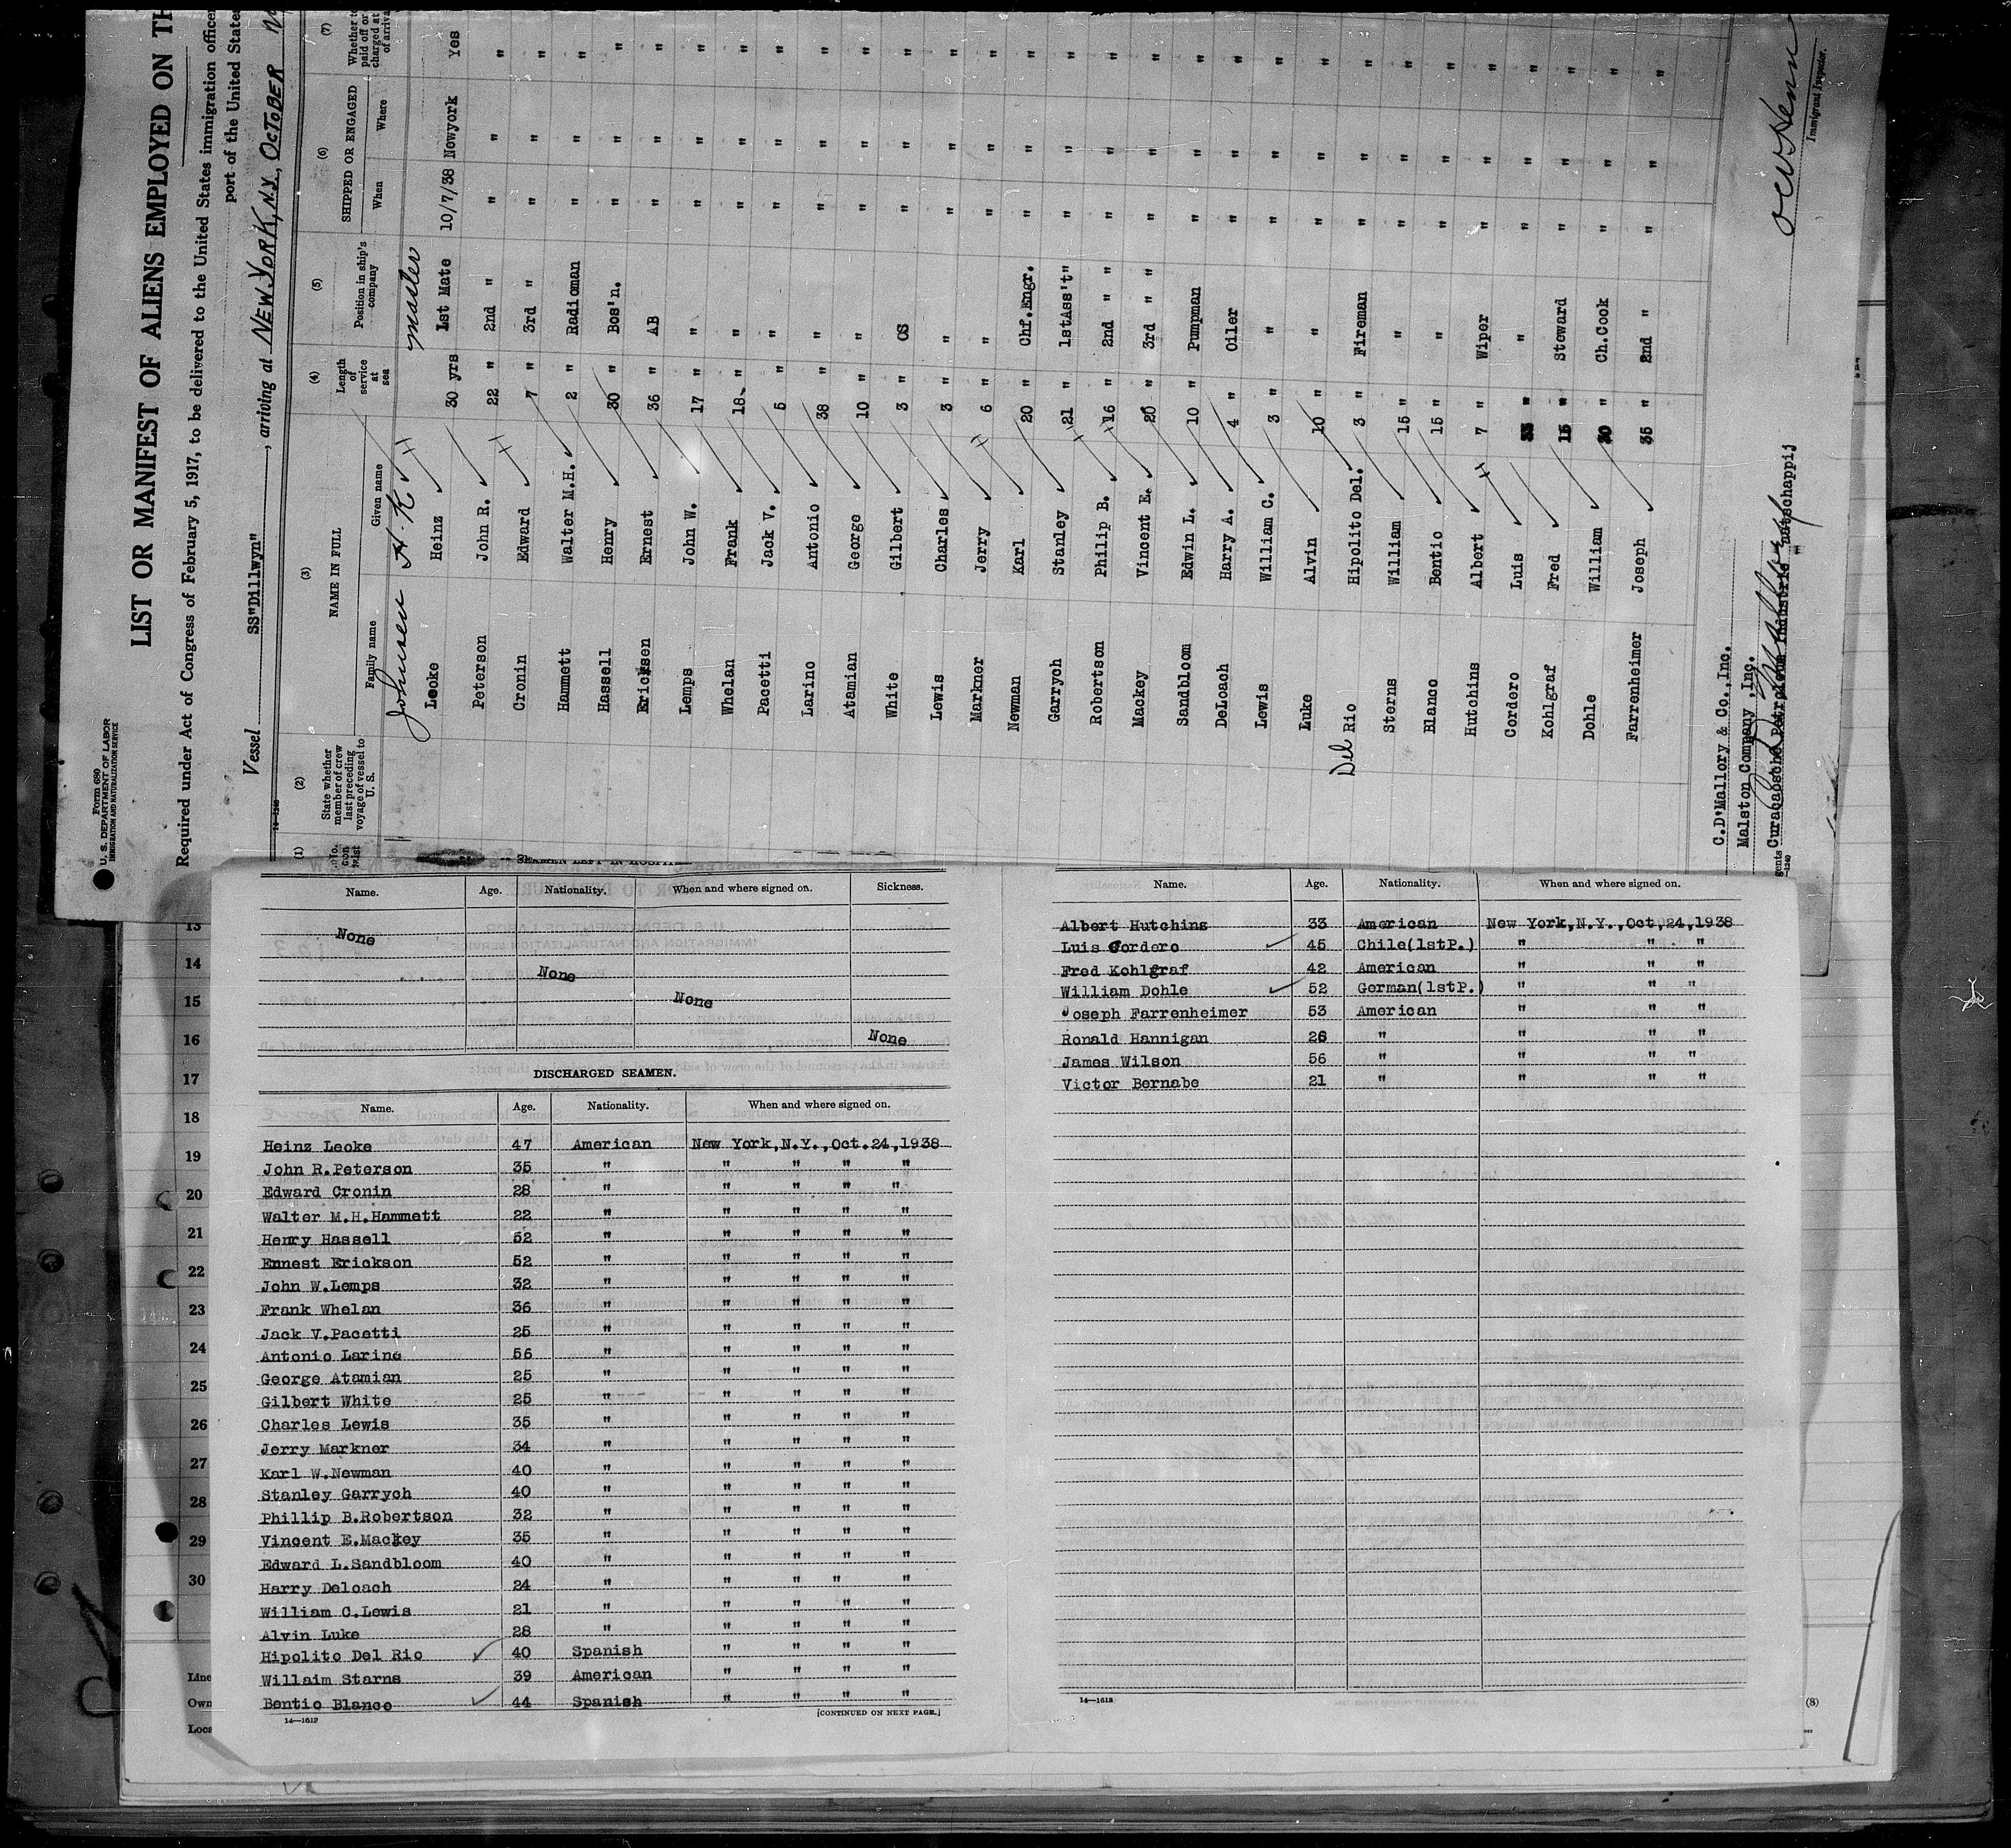 Form 680
U. S. DEPARTMENT OF LABOR
IMMIGRATION AND NATURALIZATION SERVICE
LIST OR MANIFEST OF ALIENS EMPLOYED ON TH
Required under Act of Congress of February 5, 1917, to be delivered to the United States immigration officer
port of the United States
Vessel SS"Dillwyn", arriving at NEW YORK, N.Y., OCTOBER
14—1240
(1) (2) (3) (4) (5) (6) (7)
State whether member of crew last preceding voyage of vessel to U. S.
NAME IN FULL
Family name Given name
Length of service at sea
Position in ship's company
SHIPPED OR ENGAGED
When Where
Whether to paid off or charged at of arriva
Johnsen H. K. Master
Leoke Heinz 30 yrs 1st Mate 10/7/38 Newyork Yes
Peterson John R. 22 " 2nd " " " "
Cronin Edward 7 " 3rd " " " "
Hammett Walter M.H. 2 " Radioman " " "
Hassell Henry 30 " Bos'n. " " "
Ericksen Ernest 36 " AB " " "
Lemps John W. 17 " " " " "
Whelan Frank 18 " " " " "
Pacetti Jack V. 5 " " " " "
Larino Antonio 38 " " " " "
Atamian George 10 " " " " "
White Gilbert 3 " OS " " "
Lewis Charles 3 " " " " "
Markner Jerry 6 " " " " "
Newman Karl 20 " Chf.Engr. " " "
Garrych Stanley 21 " 1stAss't" " " "
Robertson Philip B. 16 " 2nd " " " " "
Mackey Vincent E. 20 " 3rd " " " " "
Sandbloom Edwin L. 10 " Pumpman " " "
DeLoach Harry A. 4 " Oiler " " "
Lewis William C. 3 " " " " "
Luke Alvin 10 " " " " "
Del Rio Hipolito Del. 3 " Fireman " " "
Sterns William 15 " " " " "
Blanco Bentio 15 " " " " "
Hutchins Albert 7 " Wiper " " "
Cordero Luis " " " " "
Kohlgraf Fred 15 " Steward " " "
Dohle William " Ch.Cook " " "
Farrenheimer Joseph 35 " 2nd " " " "
C.D'Mallory & Co.,Inc.
Malston Company ,Inc.
gents Curacaosche Petroleum Industrie Maatschappij
14—1240
Immigrant Inspector.
SEAMEN LEFT IN HOSPITAL
Name. Age. Nationality. When and where signed on. Sickness.
None
None
None
None
DISCHARGED SEAMEN.
Name. Age. Nationality. When and where signed on.
Heinz Leoke 47 American New York,N.Y.,Oct.24,1938
John R.Peterson 35 " " " " "
Edward Cronin 28 " " " " "
Walter M.H.Hammett 22 " " " " "
Henry Hassell 52 " " " " "
Ernest Erickson 52 " " " " "
John W.Lemps 32 " " " " "
Frank Whelan 36 " " " " "
Jack V.Pacetti 25 " " " " "
Antonio Larino 56 " " " " "
George Atamian 25 " " " " "
Gilbert White 25 " " " " "
Charles Lewis 35 " " " " "
Jerry Markner 34 " " " " "
Karl W.Newman 40 " " " " "
Stanley Garrych 40 " " " " "
Phillip B.Robertson 32 " " " " "
Vincent E.Mackey 35 " " " " "
Edward L.Sandbloom 40 " " " " "
Harry Deloach 24 " " " " "
William C.Lewis 21 " " " " "
Alvin Luke 28 " " " " "
Hipolito Del Rio 40 Spanish " " " "
Willaim Starns 39 American " " " "
Bentio Blanco 44 Spanish " " " "
14—1612 [CONTINUED ON NEXT PAGE.]
Name. Age. Nationality. When and where signed on.
Albert Hutchins 33 American New York,N.Y.,Oct,24,1938
Luis Cordero 45 Chile(1stP.) " " "
Fred Kohlgraf 42 American " " "
William Dohle 52 German(1stP.) " " "
Joseph Farrenheimer 53 American " " "
Ronald Hannigan 26 " " " "
James Wilson 56 " " " "
Victor Bernabe 21 " " " "
14—1612
13
14
15
16
17
18
19
20
21
22
23
24
25
26
27
28
29
30
Line
Own
Loca
(8)